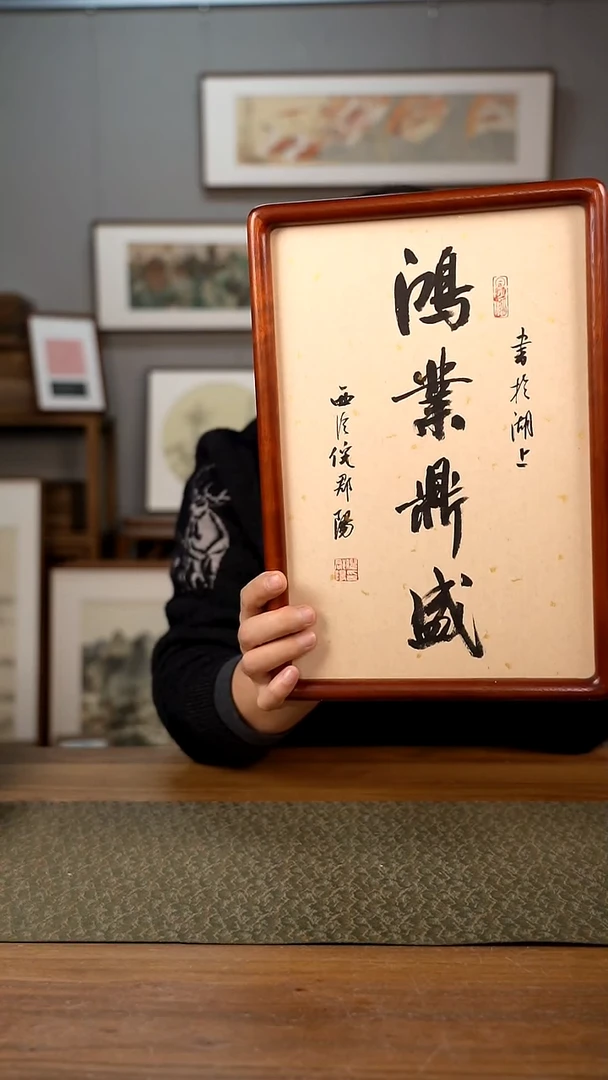 書於湖上
鴻業鼎盛
西泠倪郡陽